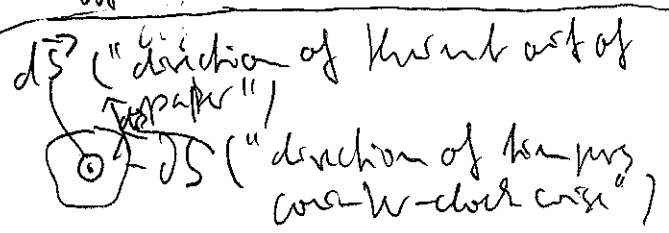 dS⃗ ("direction of thumb out of
paper")
∂S ("direction of fingers
counter-clockwise")